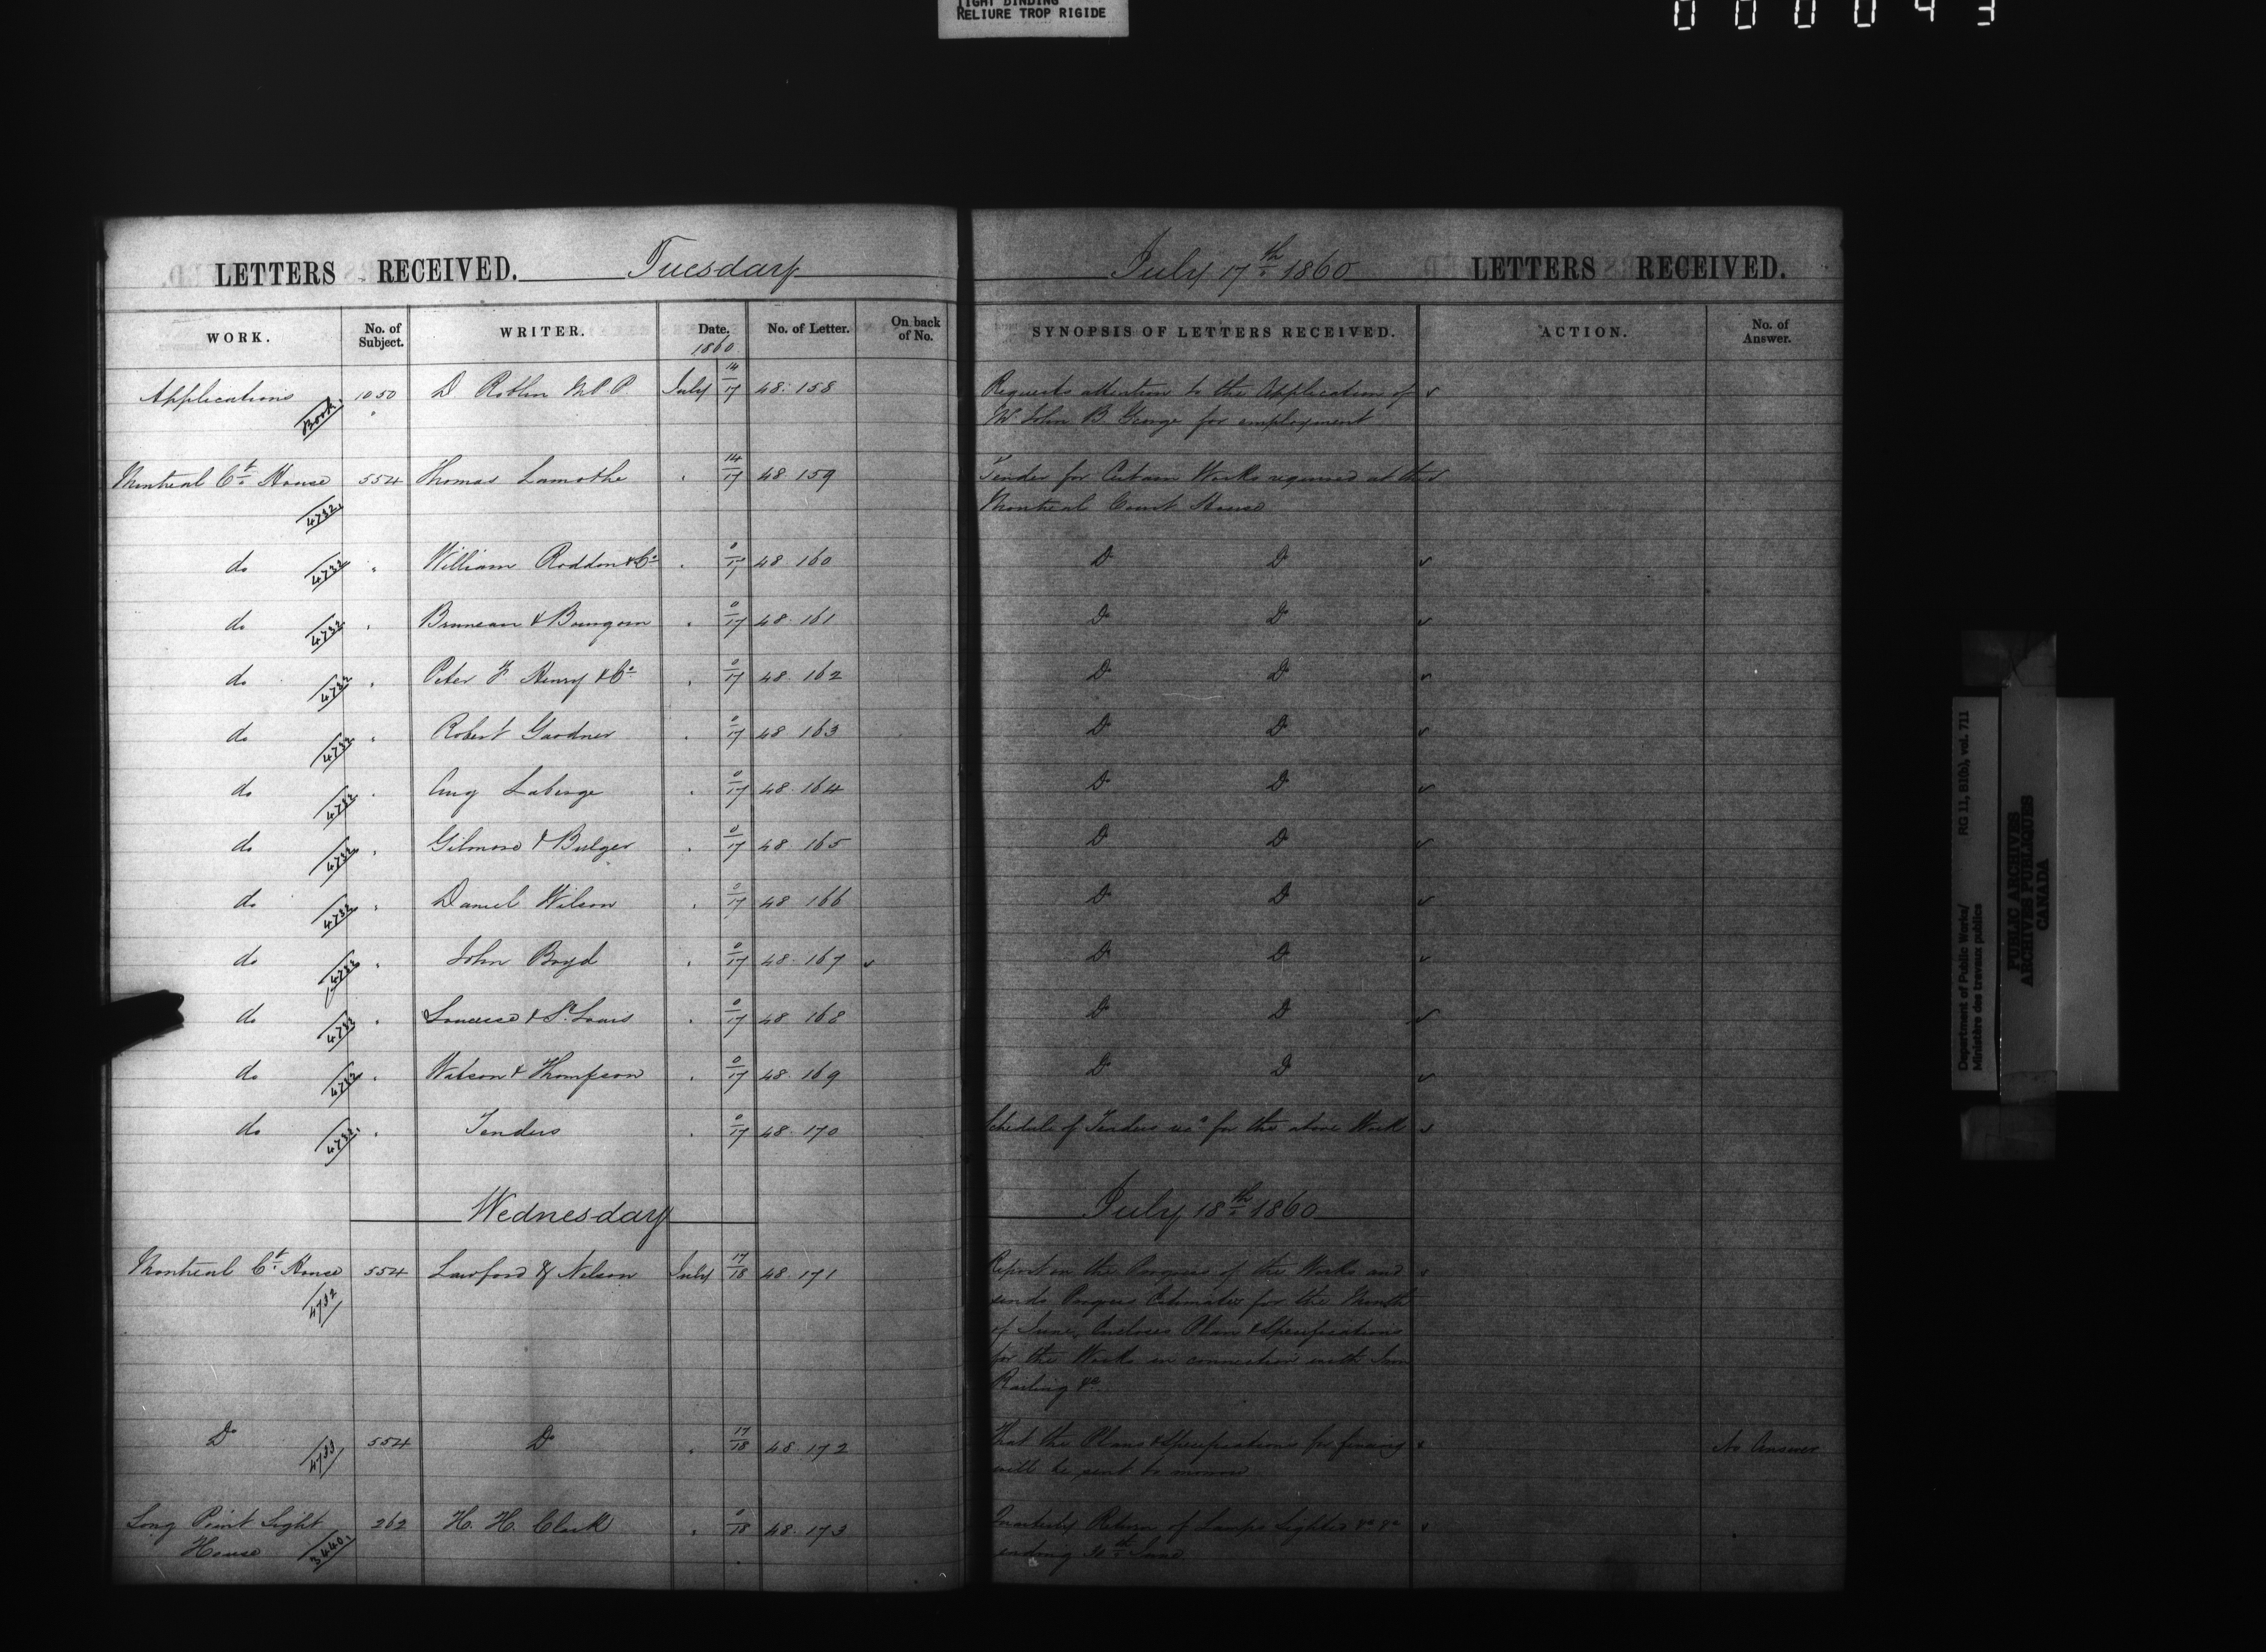 TIGHT BINDING
RELIURE TROP RIGIDE
000043
LETTERS RECEIVED. Tuesday July 17th 1860 LETTERS RECEIVED.
WORK. No. of Subject. WRITER. Date. No. of Letter. On back of No. SYNOPSIS OF LETTERS RECEIVED. ACTION. No. of Answer.
1860
Applications Book 1050 D Roblin M.P.P July 14/17 48.158 Requests attention to the Application of
Mr John B. George for employment
Montreal Ct. House 4732 554 Thomas Lamothe " 14/17 48.159 Tender for Certain Works required at the
Montreal Court House
do 4732 " William Rodden & Co " 0/17 48.160 Do Do
do 4732 " Bruneau & Bourgoin " 0/17 48.161 Do Do
do 4732 " Peter F Henry & Co " 0/17 48.162 Do Do
do 4732 " Robert Gardner " 0/17 48.163 Do Do
do 4732 " Aug Laberge " 0/17 48.164 Do Do
do 4732 " Gilmore & Bulger " 0/17 48.165 Do Do
do 4732 " Daniel Wilson " 0/17 48.166 Do Do
do 4732 " John Boyd " 0/17 48.167 Do Do
do 4732 " & St Louis " 0/17 48.168 Do Do
do 4732 " Watson & Thompson " 0/17 48.169 Do Do
do 4732 " Tenders " 0/17 48.170 Schedule of Tenders recd for the above Work
Wednesday July 18th 1860
Montreal Ct. House 4732 554 Lawford & Nelson July 17/18 48.171 Report on the Progress of the Works and
sends Progress Estimates for the Month
of June, Encloses Plan & Specifications
for the Works in connection with Iron
Railing &c
Do 4733 554 Do " 17/18 48.172 That the Plans & Specifications for fencing No Answer
will be sent to morrow
Long Point Light House 3440 262 H. H. Clark " 0/18 48.173 Quarterly Return of Lamps Lighted &c &c
ending 30th June
Department of Public Works/
Ministère des travaux publics
RG 11, B1(b), vol. 711
PUBLIC ARCHIVES
ARCHIVES PUBLIQUES
CANADA